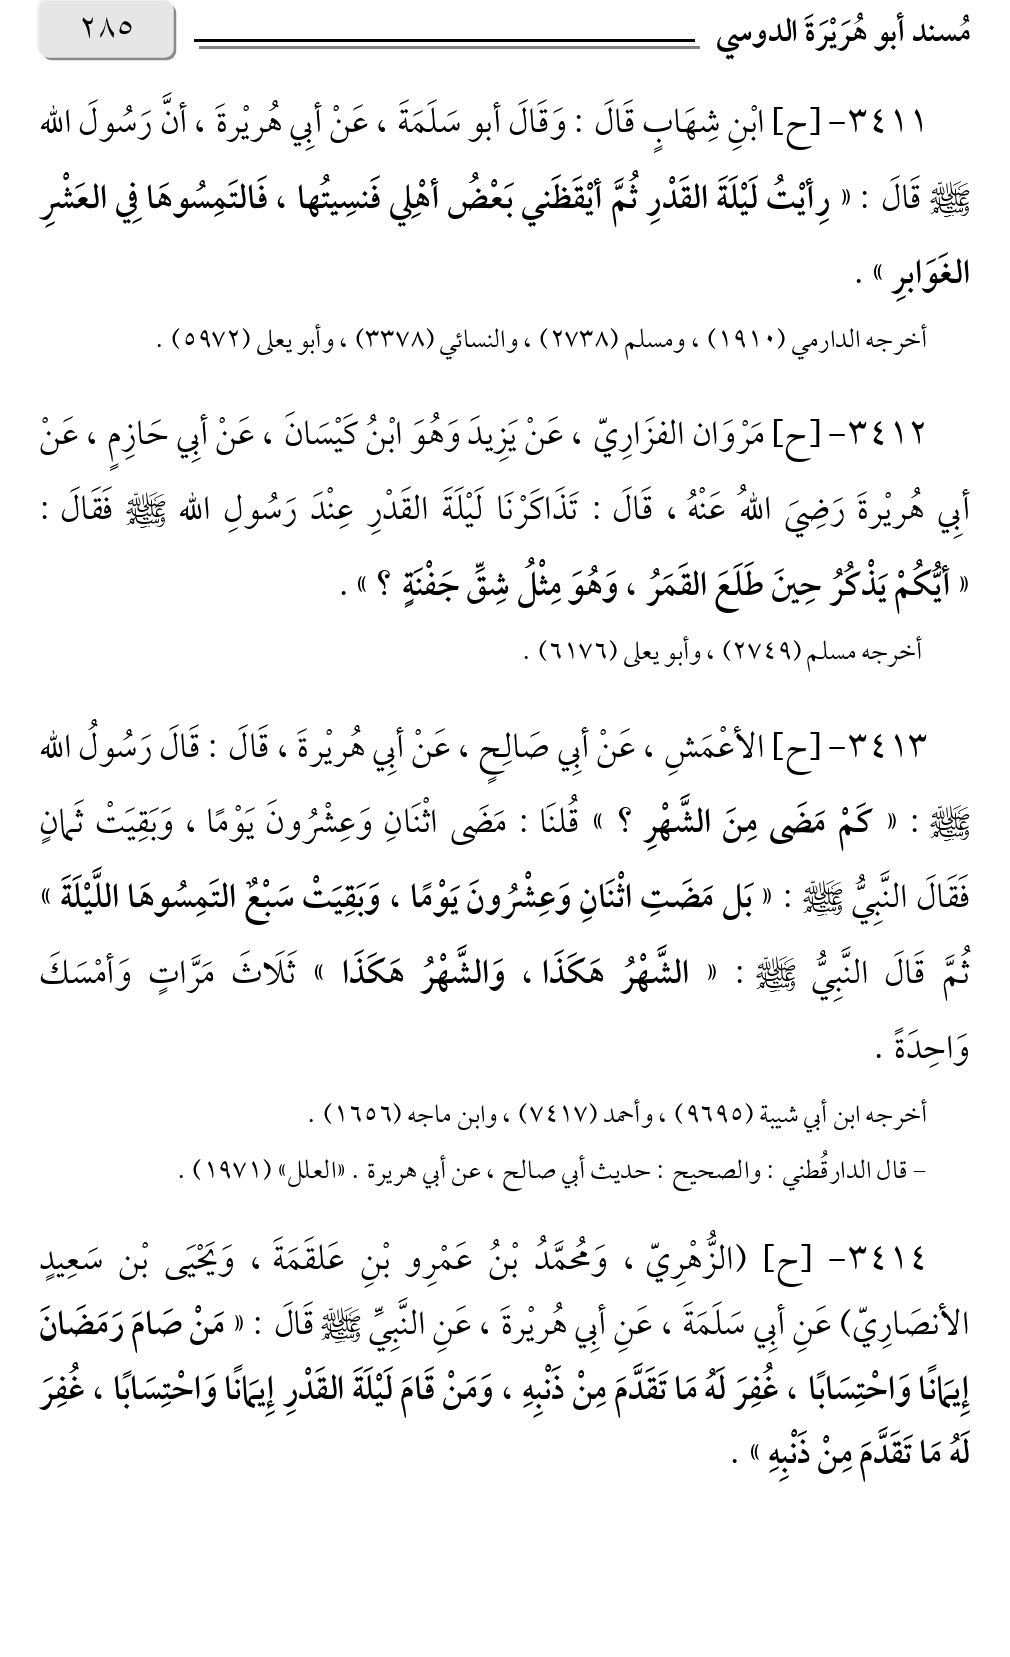 مُسند أبو هُرَيْرَةَ الدوسي ٢٨٥
٣٤١١- [ح] ابْنِ شِهَابٍ قَالَ : وَقَالَ أبو سَلَمَةَ ، عَنْ أبِي هُريْرةَ ، أنَّ رَسُولَ الله
ﷺ قَالَ : « رِأيْتُ لَيْلَةَ القَدْرِ ثُمَّ أيْقَظَني بَعْضُ أهْلِي فَنسِيتُها ، فَالتَمِسُوهَا فِي العَشْرِ
الغَوَابرِ » .
أخرجه الدارمي (١٩١٠) ، ومسلم (٢٧٣٨) ، والنسائي (٣٣٧٨) ، وأبو يعلى (٥٩٧٢) .
٣٤١٢- [ح] مَرْوَان الفزَارِيّ ، عَنْ يَزِيدَ وَهُوَ ابْنُ كَيْسَانَ ، عَنْ أبِي حَازِمٍ ، عَنْ
أبِي هُريْرةَ رَضِيَ اللهُ عَنْهُ ، قَالَ : تَذَاكَرْنَا لَيْلَةَ القَدْرِ عِنْدَ رَسُولِ الله ﷺ فَقَالَ :
« أيُّكُمْ يَذْكُرُ حِينَ طَلَعَ القَمَرُ ، وَهُوَ مِثْلُ شِقِّ جَفْنَةٍ ؟ » .
أخرجه مسلم (٢٧٤٩) ، وأبو يعلى (٦١٧٦) .
٣٤١٣- [ح] الأعْمَشِ ، عَنْ أبِي صَالِحٍ ، عَنْ أبِي هُريْرةَ ، قَالَ : قَالَ رَسُولُ الله
ﷺ : « كَمْ مَضَى مِنَ الشَّهْرِ ؟ » قُلنَا : مَضَى اثْنَانِ وَعِشْرُونَ يَوْمًا ، وَبَقِيَتْ ثَمانٍ
فَقَالَ النَّبِيُّ ﷺ : « بَل مَضَتِ اثْنَانِ وَعِشْرُونَ يَوْمًا ، وَبَقِيَتْ سَبْعٌ التَمِسُوهَا اللَّيْلَةَ »
ثُمَّ قَالَ النَّبِيُّ ﷺ : « الشَّهْرُ هَكَذَا ، وَالشَّهْرُ هَكَذَا » ثَلَاثَ مَرَّاتٍ وَأمْسَكَ
وَاحِدَةً .
أخرجه ابن أبي شيبة (٩٦٩٥) ، وأحمد (٧٤١٧) ، وابن ماجه (١٦٥٦) .
- قال الدارقُطني : والصحيح : حديث أبي صالح ، عن أبي هريرة . «العلل» (١٩٧١) .
٣٤١٤- [ح] (الزُّهْرِيّ ، وَمُحمَّدُ بْنُ عَمْرِو بْنِ عَلقَمَةَ ، وَيَحْيَى بْن سَعِيدٍ
الأنصَارِيّ) عَنِ أبِي سَلَمَةَ ، عَنِ أبِي هُريْرةَ ، عَنِ النَّبِيِّ ﷺ قَالَ : « مَنْ صَامَ رَمَضَانَ
إِيمَانًا وَاحْتِسَابًا ، غُفِرَ لَهُ مَا تَقَدَّمَ مِنْ ذَنْبِهِ ، وَمَنْ قَامَ لَيْلَةَ القَدْرِ إِيمَانًا وَاحْتِسَابًا ، غُفِرَ
لَهُ مَا تَقَدَّمَ مِنْ ذَنْبِهِ » .